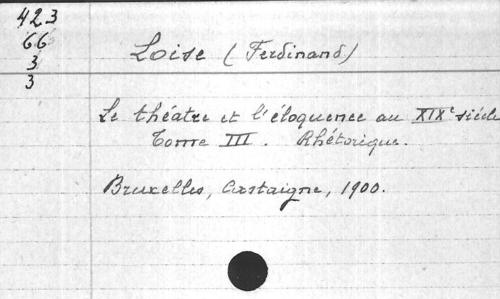 423
66
3
3
Loise (Ferdinand)
Le théatre et l'éloquence au XIXe siécle
Tome III. Rhétorique.
Bruxelles, Castaigne, 1900.